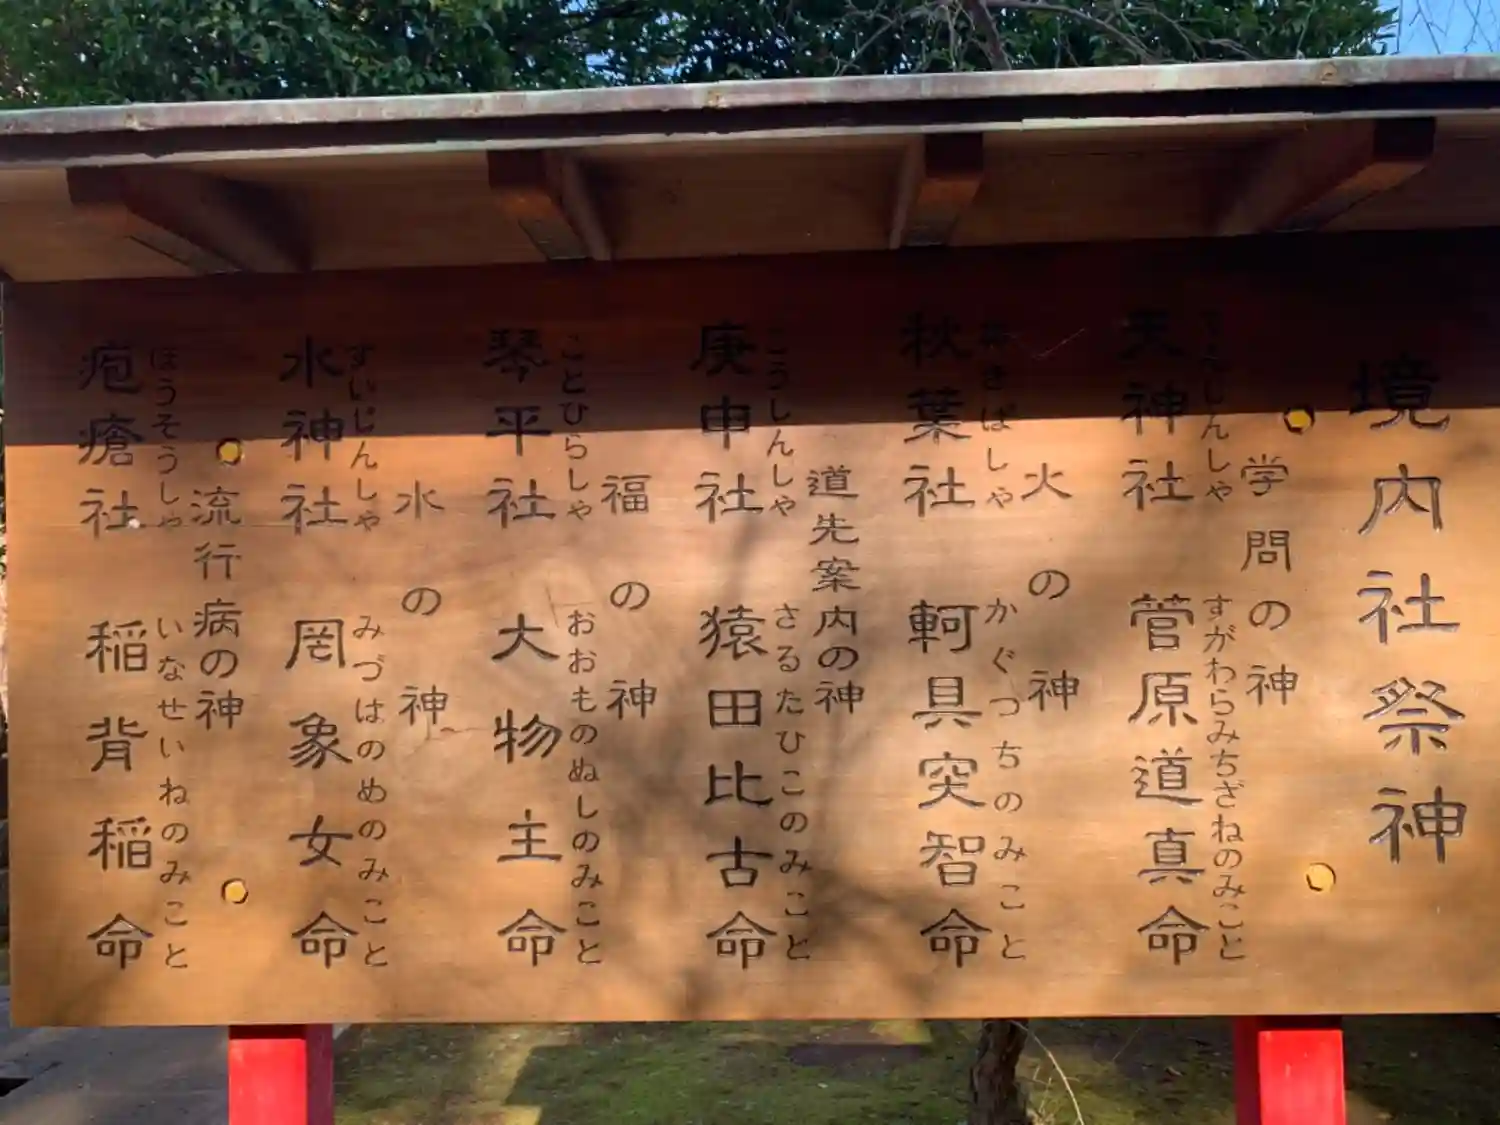 境内社祭神
学問の神
てんじんしゃ
すがわらみちざねのみこと
天神社 菅原道真命
火の神
あきばしゃ
かぐつちのみこと
秋葉社 軻具突智命
道先案内の神
こうしんしゃ
さるたひこのみこと
庚申社 猿田比古命
福の神
ことひらしゃ
おおものぬしのみこと
琴平社 大物主命
水の神
すいじんしゃ
みづはのめのみこと
水神社 罔象女命
流行病の神
ほうそうしゃ
いなせいねのみこと
疱瘡社 稲背稲命